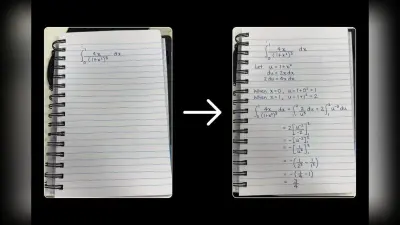 ∫₀¹ 4x/(1+x²)³ dx
∫₀¹ 4x/(1+x²)³ dx
Let u = 1+x²
du = 2x dx
2du = 4x dx
When x=0, u = 1+0² = 1
When x=1, u = 1+1² = 2
∫₀¹ 4x/(1+x²)³ dx = ∫₁² 2/u³ du = 2∫₁² u⁻³ du
= 2[u⁻²/-2]₁²
= -[u⁻²]₁²
= -[1/u²]₁²
= -(1/2² - 1/1²)
= -(1/4 - 1)
= 3/4